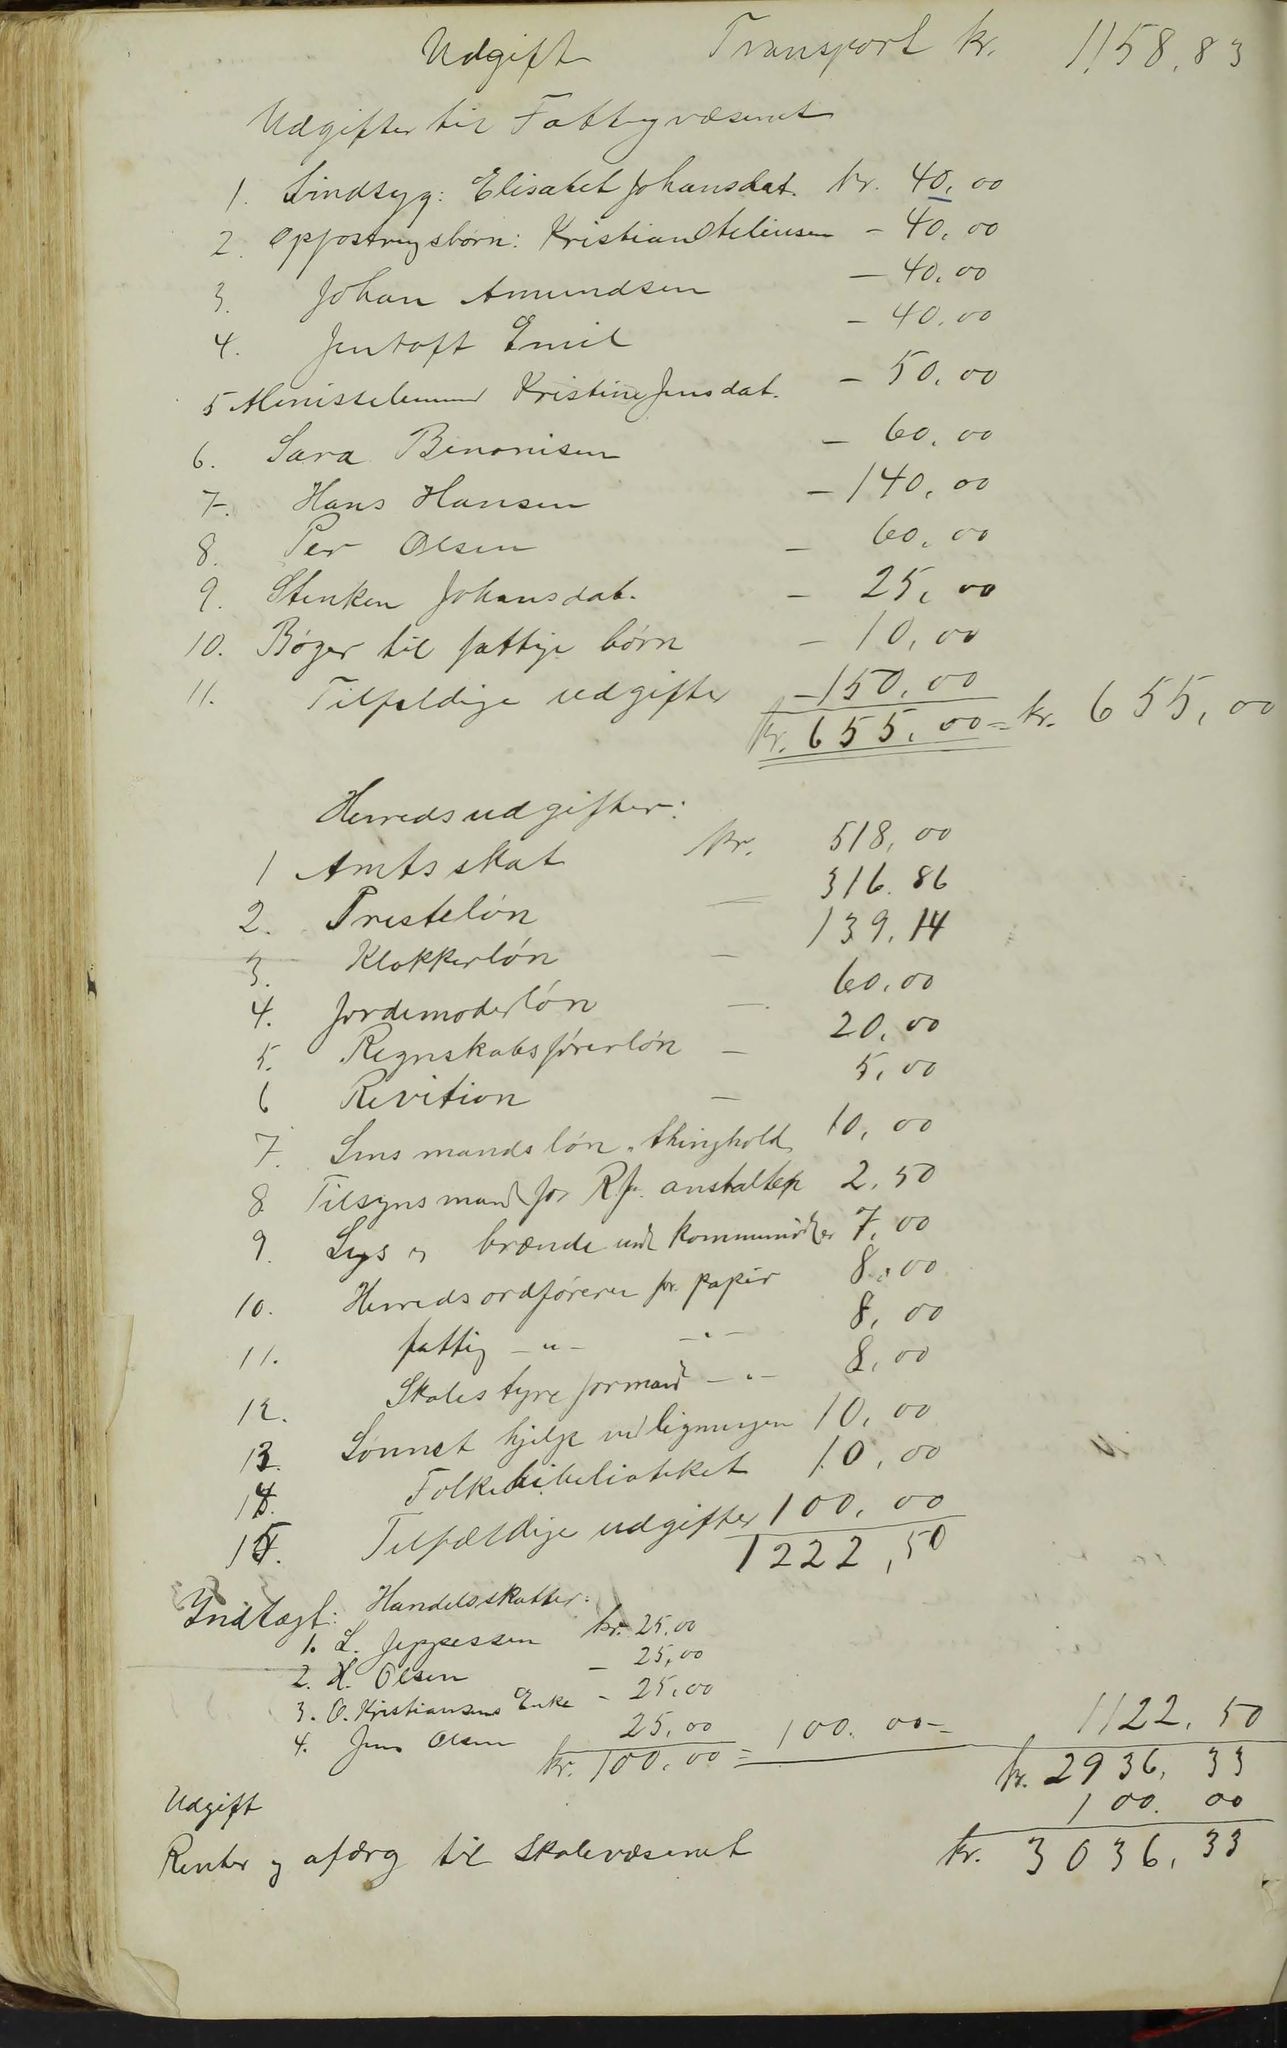 Udgift Transport kr. 1158,83
Udgifter til Fattigvæsenet
1. Sindsyg: Elisabet Johansdat. Kr. 40,00
2. Opfostringsbörn: Kristian Steliusen - 40,00
3. Johan Amundsen - 40,00
4. Jentoft Emil - 40,00
5 Kristine Jensdat. - 50,00
6. Sara Benonisen - 60,00
7. Hans Hansen - 140,00
8. Per Olsen - 60,00
9. Stinken Johansdat. - 25,00
10. Bøger til fattige børn - 10,00
11. Tilfeldige udgifter - 150,00
Kr. 655,00 = kr. 655,00
Herredsudgifter:
1 Amtsskat Kr. 518,00
2. Presteløn - 316.86
3. Klokkerløn - 139,14
4. Jordemoderløn - 60,00
5. Regnskabsførerløn - 20,00
6 Revition - 5,00
7. Lensmandsløn. thinghold 10,00
8. Tilsynsmand for Rp. anstalten 2,50
9. Lys og brænde ved kommunmöder 7,00
10. Herredsordføreren for papir 8,00
11. fattig -"- -"- 8,00
12. Skolestyreformand -"- 8,00
13. Lønnet hjelp ved ligningen 10,00
14. Folkebibelioteket 10,00
15. Tilfældige udgifter 100,00
1222,50
Indtægt: Handelsskatter:
1. L. Jeppessen kr. 25,00
2. H. Olsen - 25,00
3. O. Kristiansens Enke - 25,00
4. Jens Olsen 25,00
kr. 100,00 = 100.00 - 1122.50
kr. 2936,33
Udgift 100.00
Renter og afdrg til Skolevæsenet kr. 3036,33